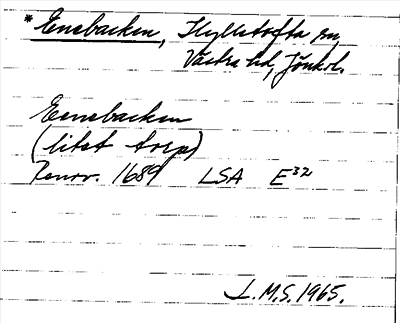 * Enebacken, Hyllstofta sn,
Västra hd, Jönk.l.
Eenebacken
(litet torp)
Renov. 1689 LSA E32
L.M.S. 1965.